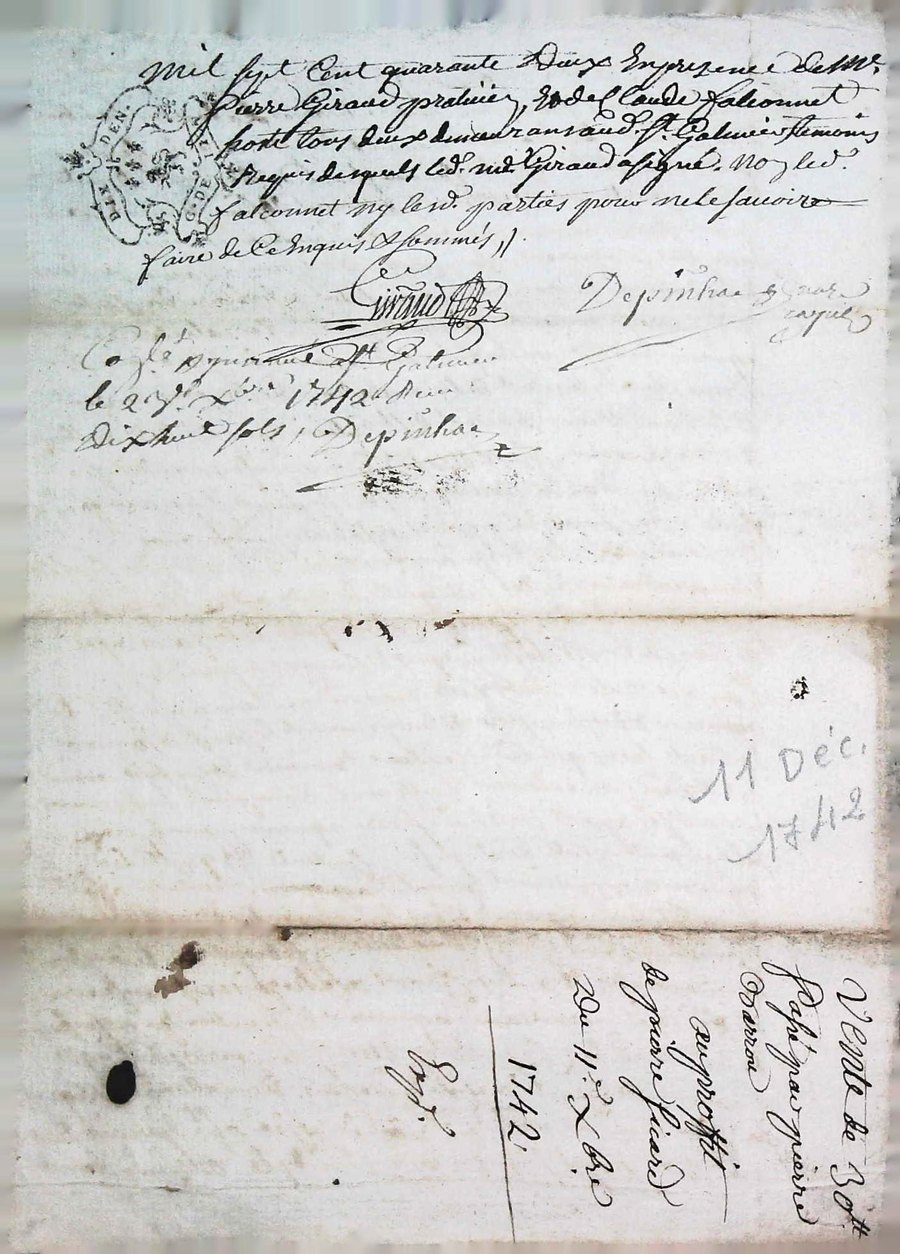 mil sept cent quarante deux En presence de Me
pierre Giraud praticien, Et de Claude falconnet
tous deux demeurans aud. St. Galmier temoins
requis desquels led. me Giraud a signé. Non led.
falconnet ny lesd. parties pour ne le savoir
faire de ce Enquis et sommés,
Giraud
Depinhac
Galmier
le 1742
dix huit sols, Depinhac
DIX DEN.
G. DE
11 Déc.
1742
Vente de 30tt
passé par pierre
au proffit
de pierre sicard
Du 11e Xbre
1742
Exp.